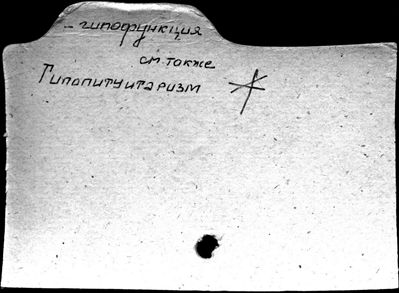 - гипофункция
см. также
Гипопитуитаризм